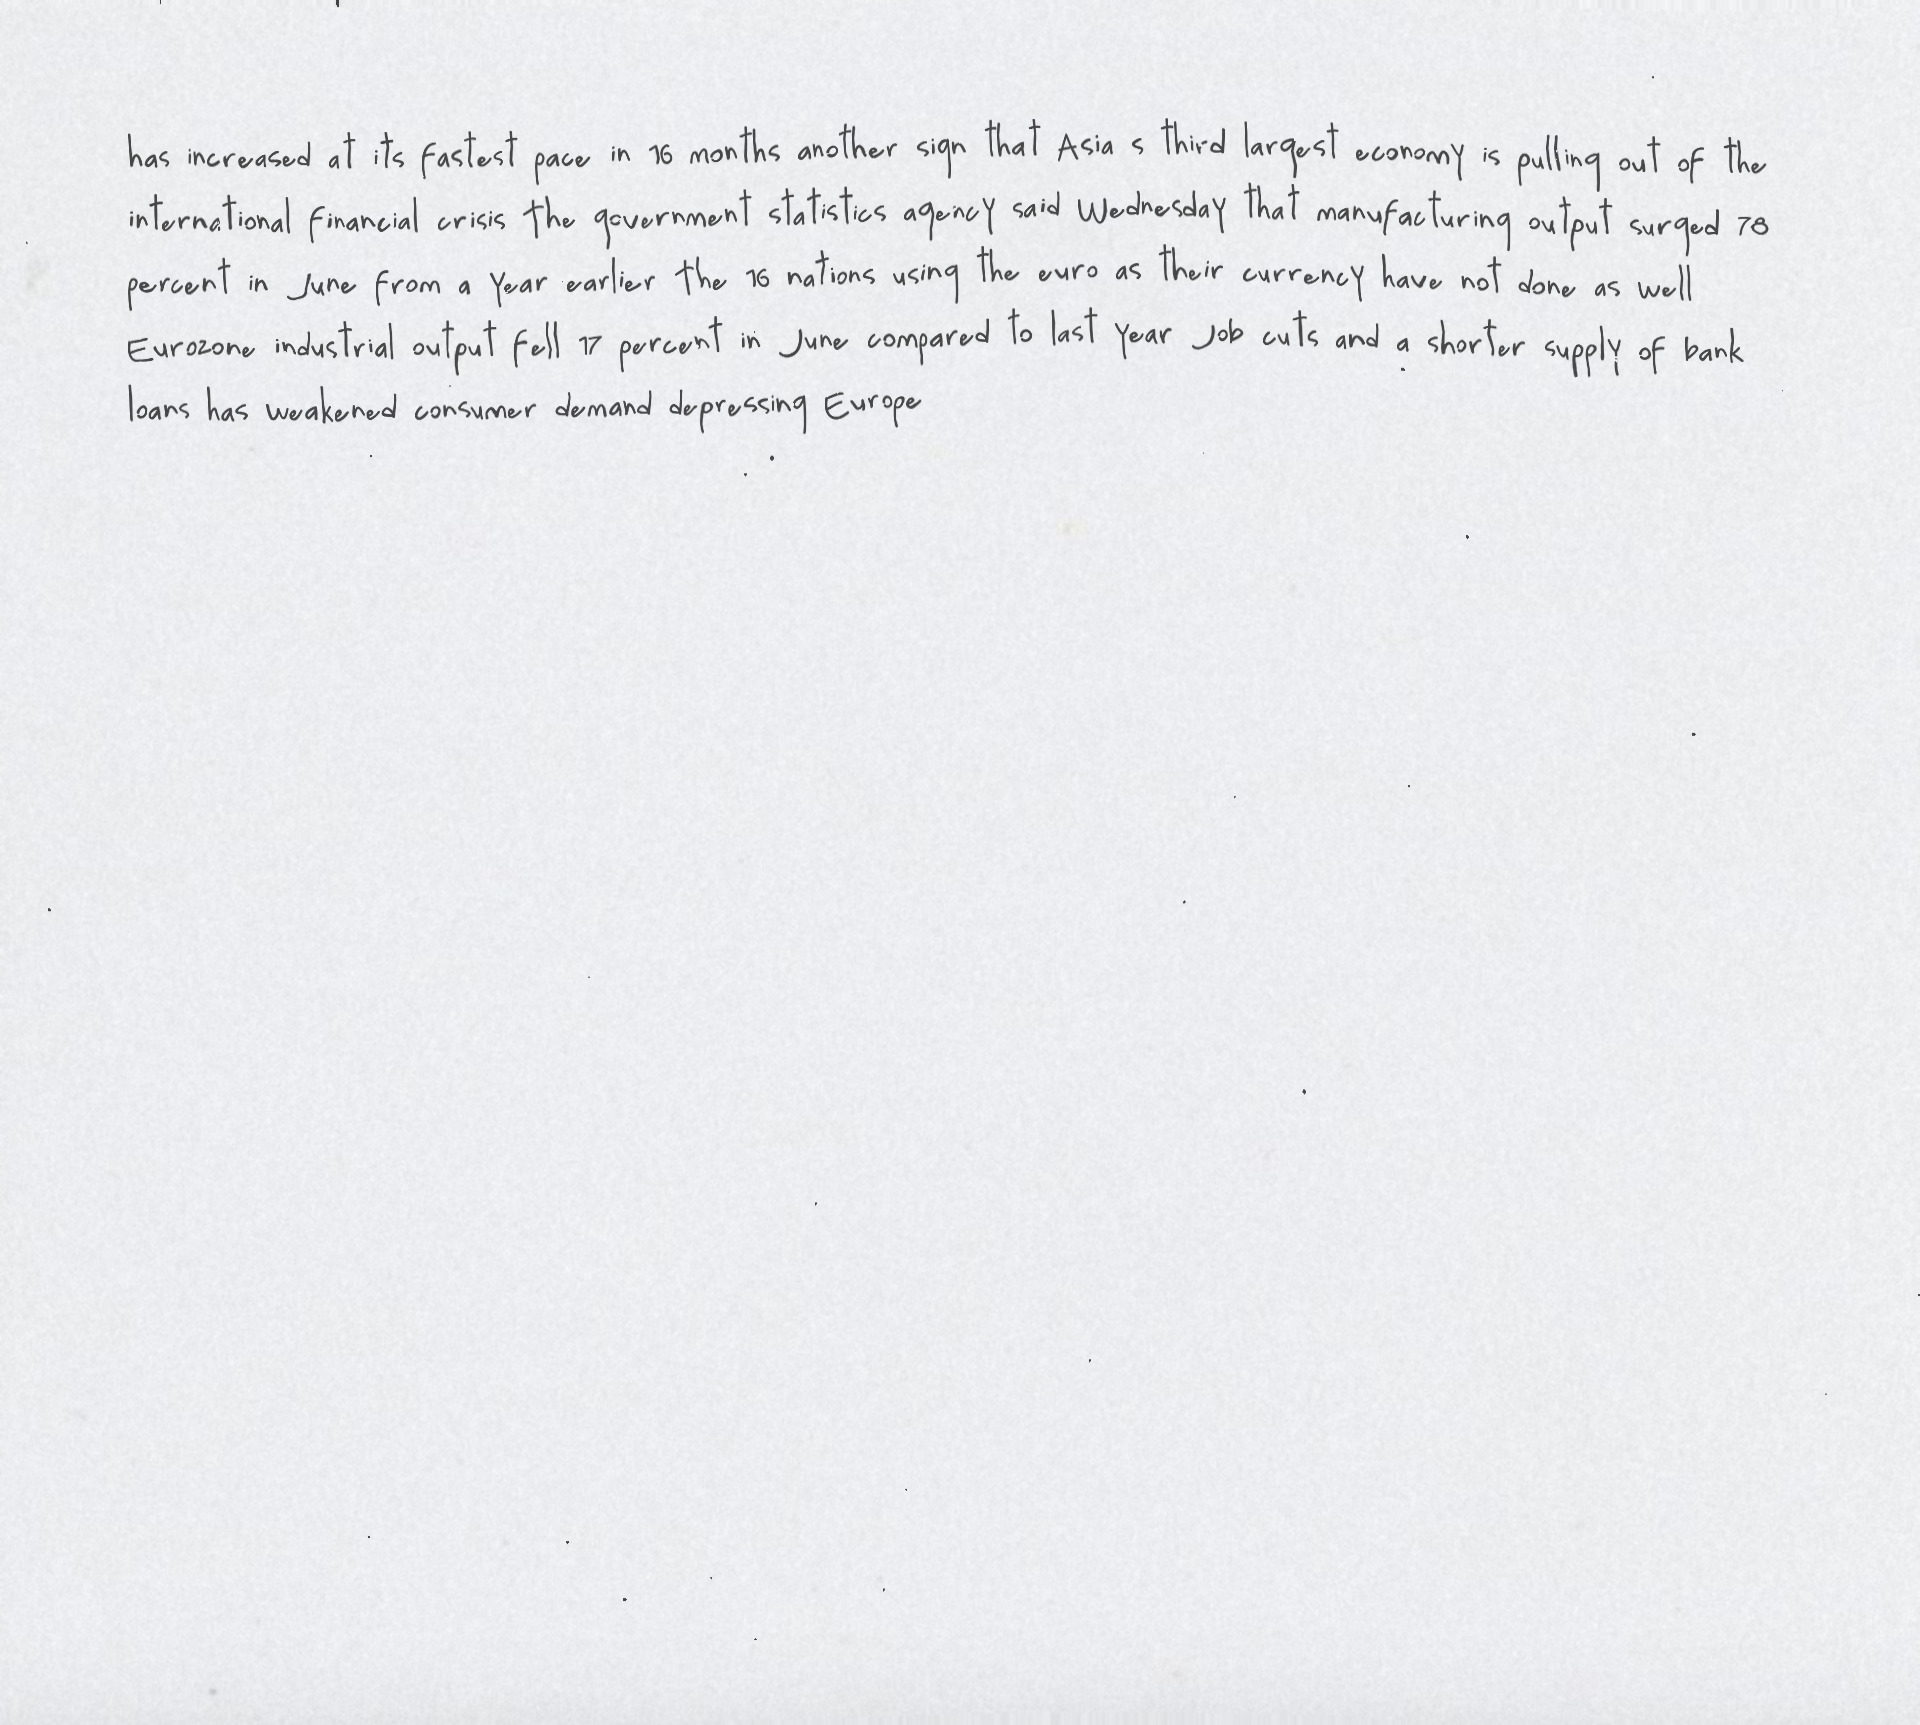 has increased at its fastest pace in 16 months another sign that Asia s third largest economy is pulling out of the
international financial crisis the government statistics agency said Wednesday that manufacturing output surged 78
percent in June from a year earlier the 16 nations using the euro as their currency have not done as well
Eurozone industrial output fell 17 percent in June compared to last year Job cuts and a shorter supply of bank
loans has weakened consumer demand depressing Europe